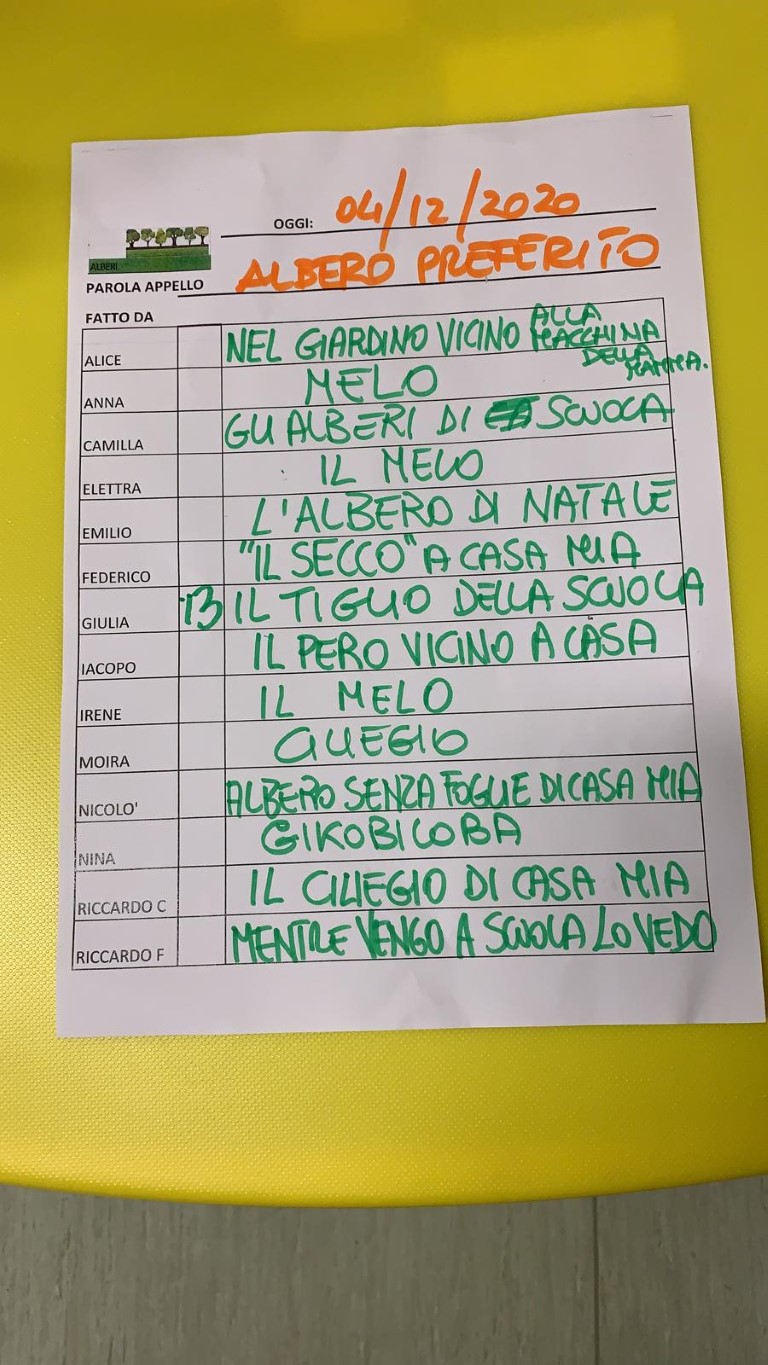 OGGI: 04/12/2020
ALBERI
PAROLA APPELLO ALBERO PREFERITO
FATTO DA
ALICE NEL GIARDINO VICINO ALLA MACCHINA DELLA MAMMA.
ANNA MELO
CAMILLA GLI ALBERI DI SCUOLA
ELETTRA IL MELO
EMILIO L'ALBERO DI NATALE
FEDERICO "IL SECCO" A CASA MIA
GIULIA 13 IL TIGLIO DELLA SCUOLA
IACOPO IL PERO VICINO A CASA
IRENE IL MELO
MOIRA CILIEGIO
NICOLO' ALBERO SENZA FOGLIE DI CASA MIA
NINA GIKOBILOBA
RICCARDO C IL CILIEGIO DI CASA MIA
RICCARDO F MENTRE VENGO A SCUOLA LO VEDO